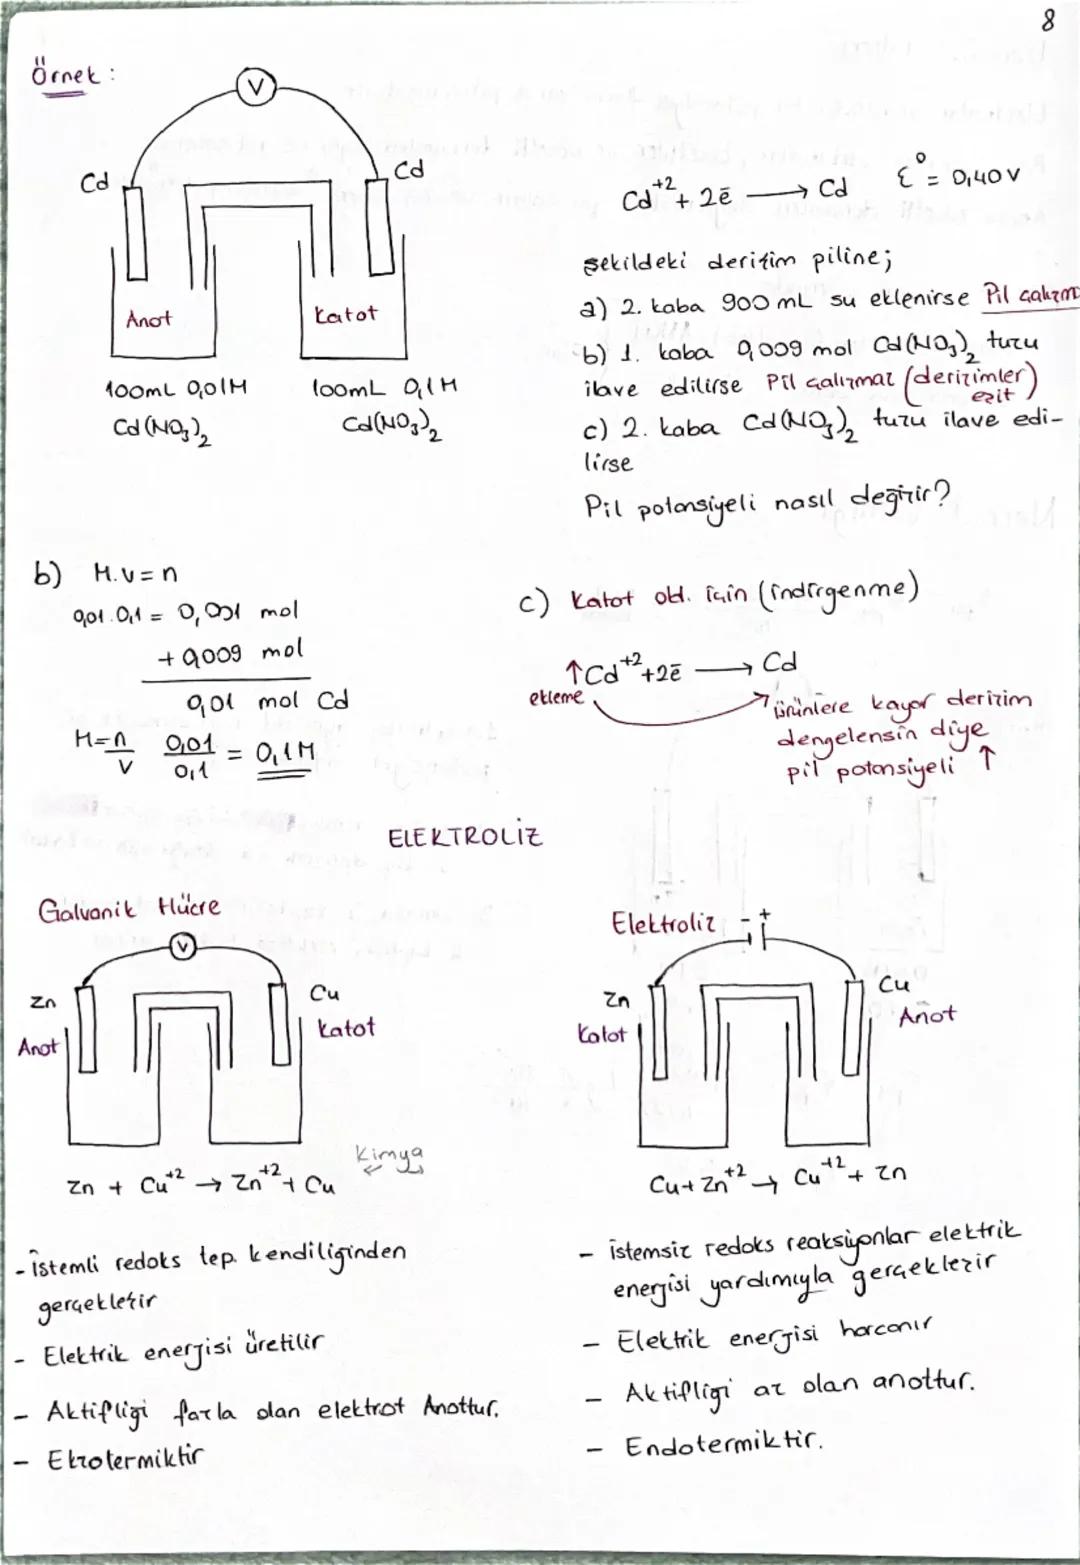 8
Örnek :
V
Cd
Cd
Cd+2 + 2ē → Cd ε° = 0,40 v
Anot
Katot
100mL 0,01M
Cd(NO3)2
100mL 0,1M
Cd(NO3)2
şekildeki derişim piline;
a) 2. kaba 900 mL su eklenirse Pil çalışm
b) 1. kaba 0,009 mol Cd(NO3)2 tuzu
ilave edilirse Pil çalışmaz (derişimler eşit)
c) 2. kaba Cd(NO3)2 tuzu ilave edi-
lirse
Pil potansiyeli nasıl değişir?
b) M.v=n
0,01.0,1 = 0,001 mol
+ 0,009 mol
0,01 mol Cd
M=n/v 0,01/0,1 = 0,1M
c) Katot old. için (indirgenme)
↑Cd+2+2ē → Cd
ekleme
ürünlere kayar derişim
dengelensin diye
pil potansiyeli ↑
ELEKTROLİZ
Galvanik Hücre
V
Zn
Anot
Cu
Katot
Zn + Cu+2 → Zn+2 + Cu
Kimya
-istemli redoks tep. kendiliğinden
gerçekleşir
- Elektrik enerjisi üretilir
- Aktifliği fazla olan elektrot Anottur.
- Ekzotermiktir
Elektroliz - +
Zn
Katot
Cu
Anot
Cu+Zn+2 → Cu+2 + Zn
- istemsiz redoks reaksiyonlar elektrik
enerjisi yardımıyla gerçekleşir
- Elektrik enerjisi harcanır
- Aktifliği az olan anottur.
- Endotermiktir.